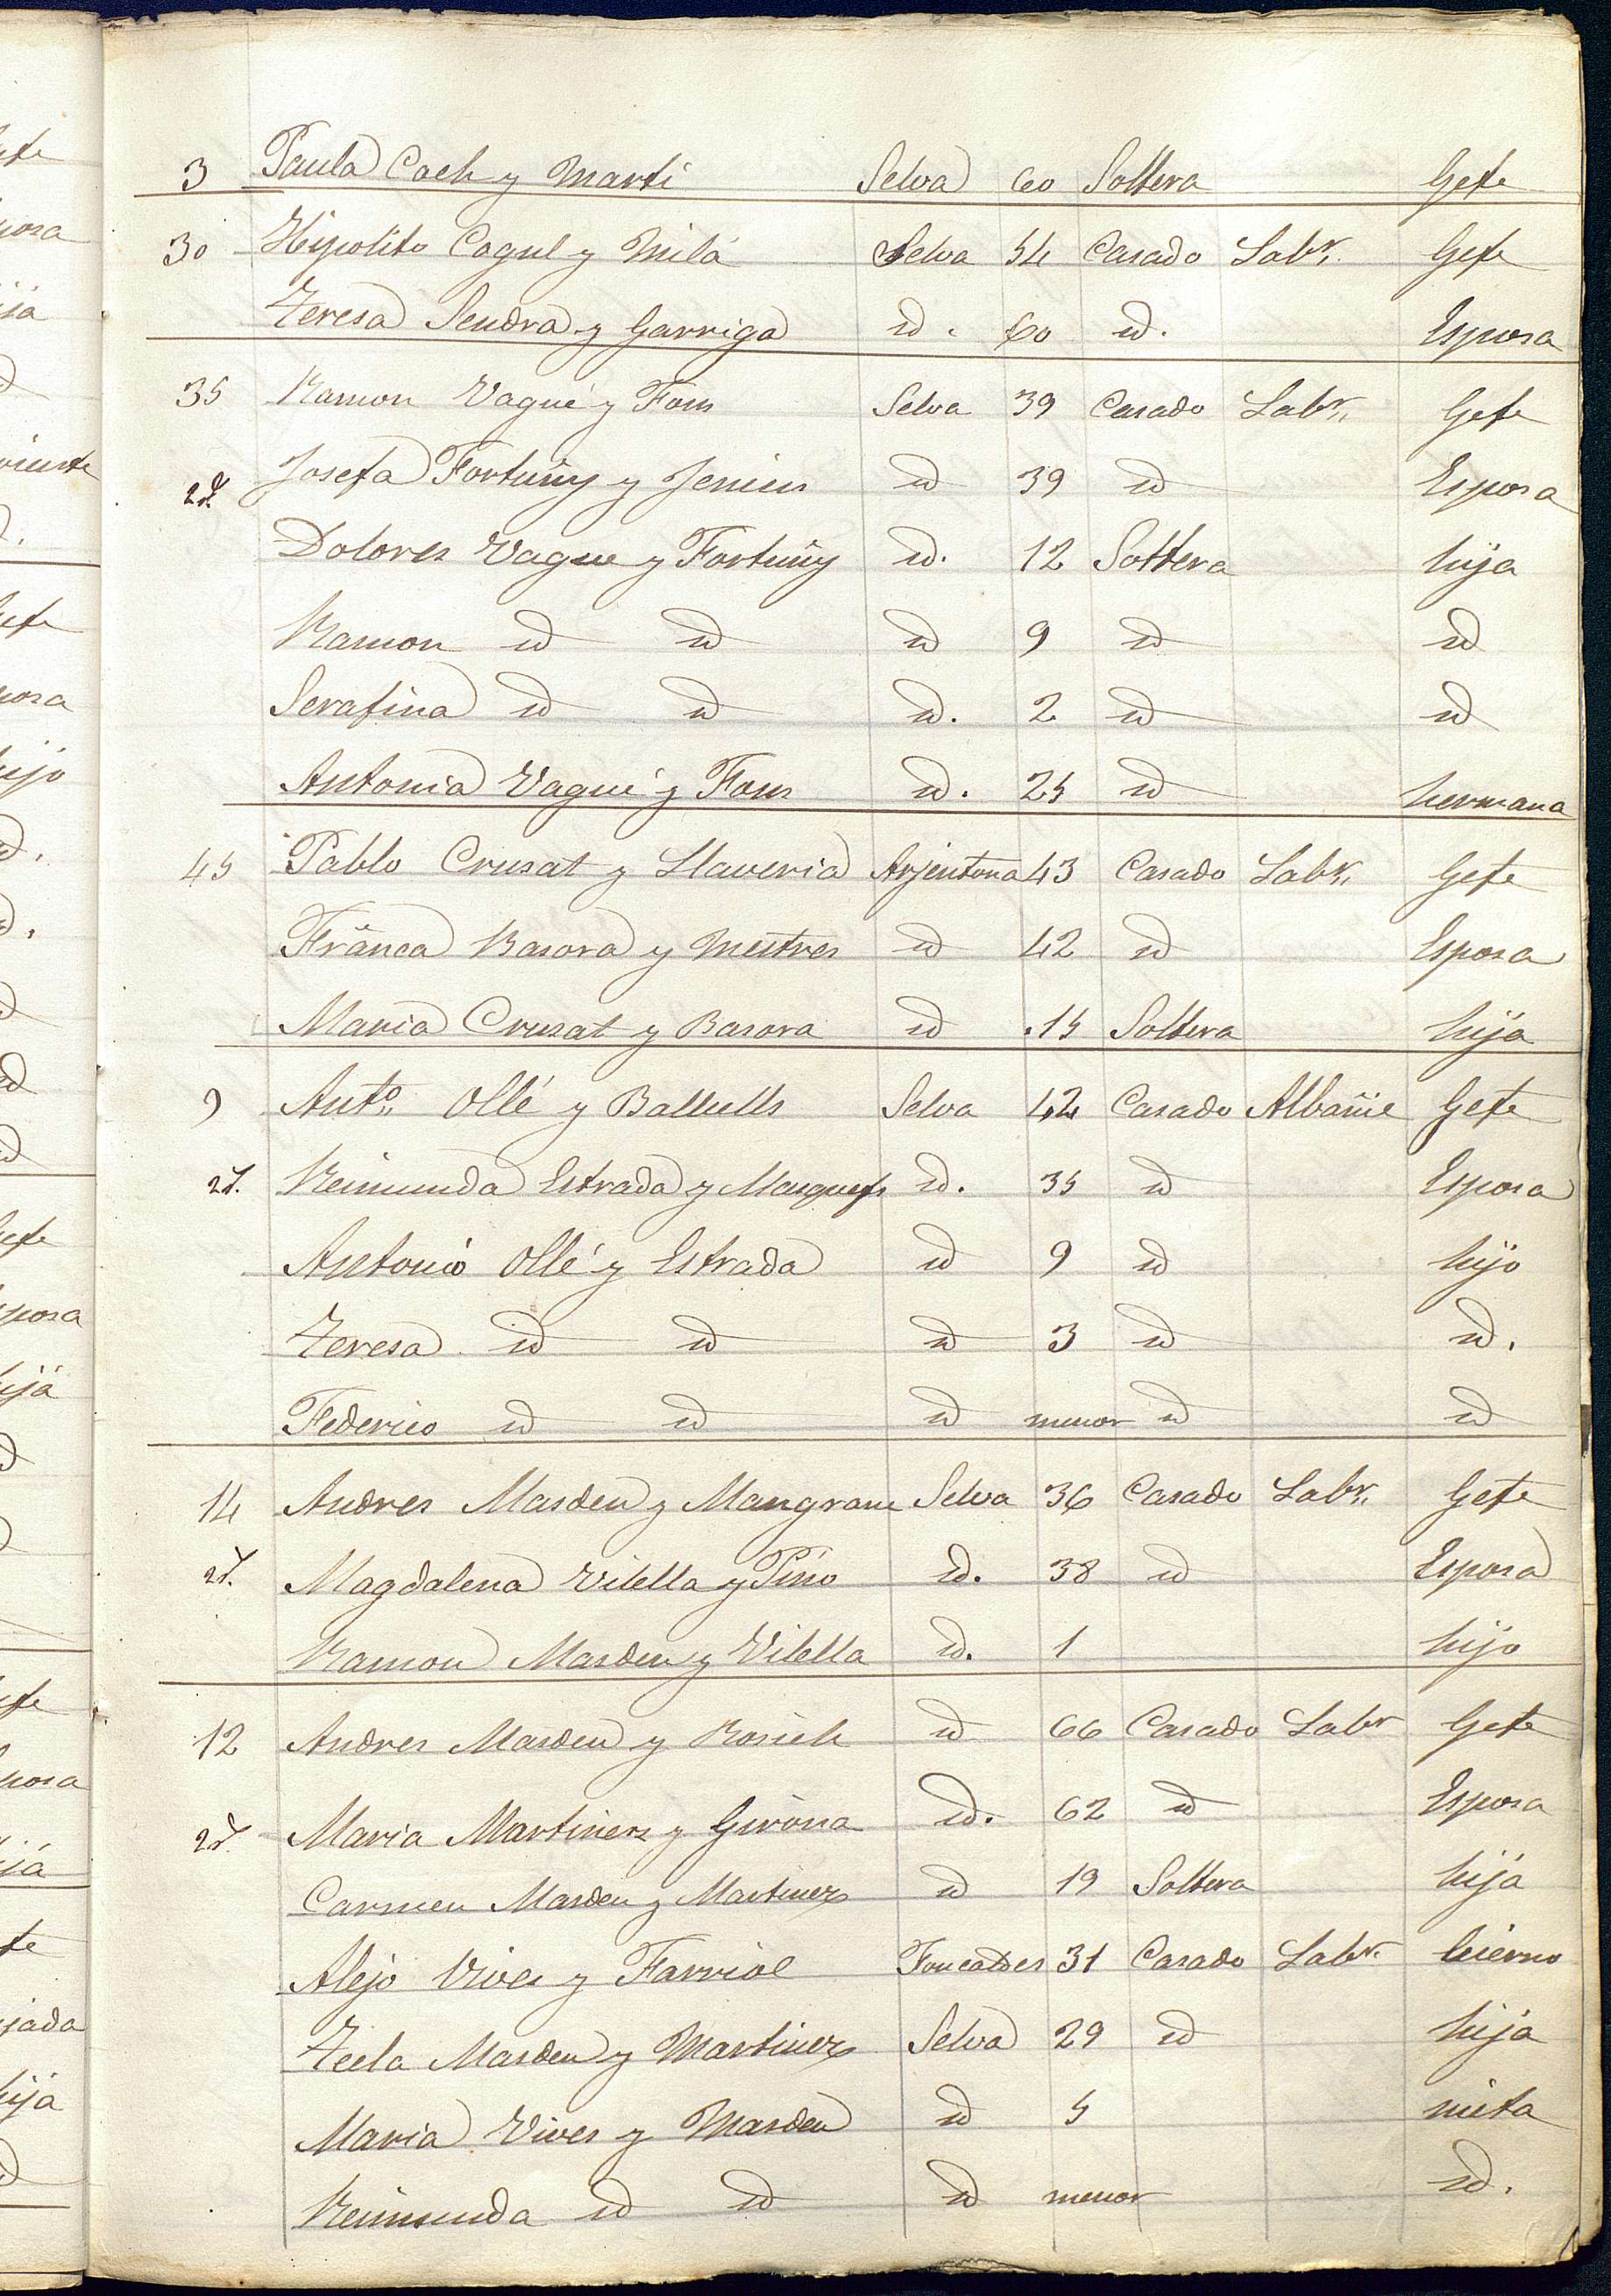 3 Paula Coch y Marti Selva 60 Soltera Gefe
30 Hipolito Cogul y Milá Selva 54 Casado Labr. Gefe
Teresa Sendra y Garriga id. 60 id. Esposa
35 Ramon Vagué y Fons Selva 39 Casado Labr. Gefe
Josefa Fortuny y id 39 id Esposa
Dolores Vague y Fortuñy id. 12 Soltera hija
Ramon id id id 9 id id
Serafina id id id. 2 id id
Antonia Vagué y Fons id. 25 id hermana
45 Pablo Crusat y Llaveria Arjentona 43 Casado Labr. Gefe
Franca Basora y Mestres id 42 id Esposa
Maria Crusat y Basora id 15 Soltera hija
9 Anto. Ollé y Ballells Selva 42 Casado Albañie Gefe
Reimunda Estrada y id. 35 id Esposa
Antonio Ollé y Estrada id 9 id hijo
Teresa id id id 3 id id.
Federico id id id menor id id
14 Andres Masdeu y Mangrane Selva 36 Casado Labr. Gefe
Magdalena Vilella y Pino id. 38 id Esposa
Ramon Masdeu y Vilella id. 1 hijo
12 Andres Masdeu y Rosich id 66 Casado Labr Gefe
Maria Martinez y Girona id. 62 id Esposa
Carmen Masdeu y Martinez id 19 Soltera hija
Alejo Vives y Farriol 31 Casado Labr. hierno
Tecla Masdeu y Martinez Selva 29 id hija
Maria Vives y Masdeu id 5 nieta
Reimunda id id id menor id.